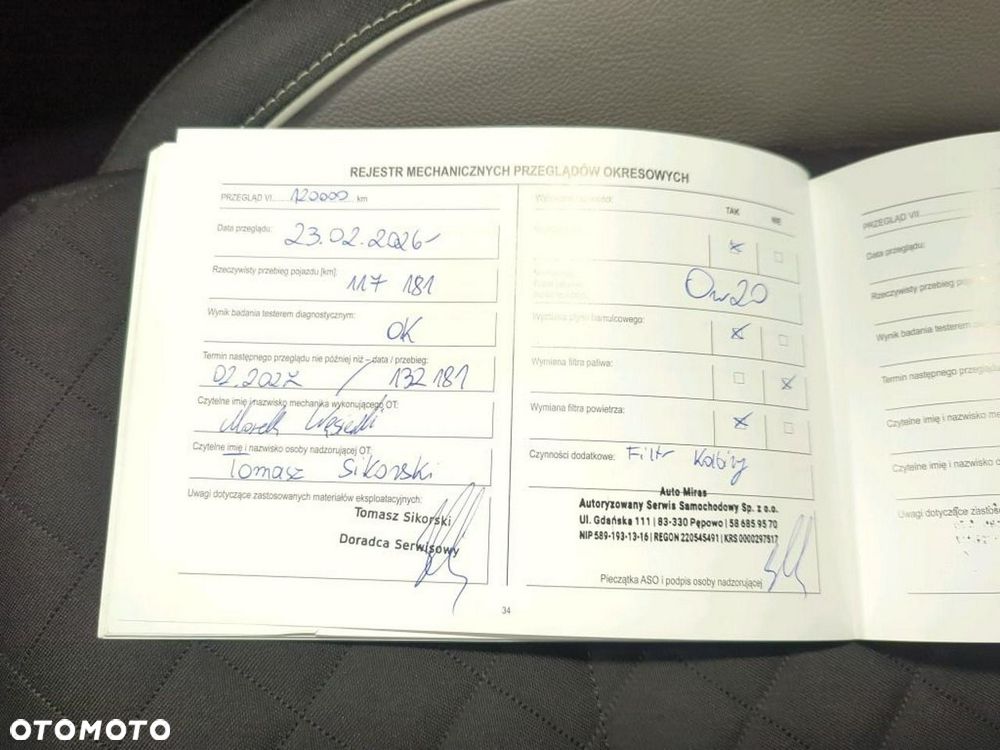 REJESTR MECHANICZNYCH PRZEGLĄDÓW OKRESOWYCH
PRZEGLĄD VI 120000 km
Data przeglądu: 23.02.2026
Rzeczywisty przebieg pojazdu [km]: 117 181
Wynik badania testerem diagnostycznym: OK
Termin następnego przeglądu nie później niż – data / przebieg:
02.2027 / 132 181
Czytelne imię i nazwisko mechanika wykonującego OT:
Marek
Czytelne imię i nazwisko osoby nadzorującej OT:
Tomasz Sikorski
Uwagi dotyczące zastosowanych materiałów eksploatacyjnych:
Tomasz Sikorski
Doradca Serwisowy
TAK NIE
0w20
Wymiana płynu hamulcowego:
Wymiana filtra paliwa:
Wymiana filtra powietrza:
Czynności dodatkowe: Filtr Kabiny
Auto Miras
Autoryzowany Serwis Samochodowy Sp. z o.o.
Ul. Gdańska 111 | 83-330 Pępowo | 58 685 95 70
NIP 589-193-13-16 | REGON 220545491 | KRS 0000297517
Pieczątka ASO i podpis osoby nadzorującej
34
PRZEGLĄD VII
Data przeglądu:
Rzeczywisty przebieg
Wynik badania testerem
Termin następnego przeglądu
Czytelne imię i nazwisko
Czytelne imię i nazwisko
Uwagi dotyczące
OTOMOTO